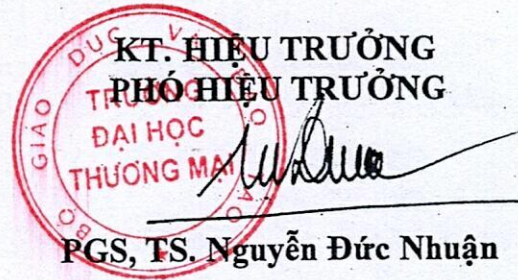 KT. HIỆU TRƯỞNG
PHÓ HIỆU TRƯỞNG
BỘ GIÁO DỤC VÀ ĐÀO TẠO
TRƯỜNG
ĐẠI HỌC
THƯƠNG MẠI
PGS, TS. Nguyễn Đức Nhuận